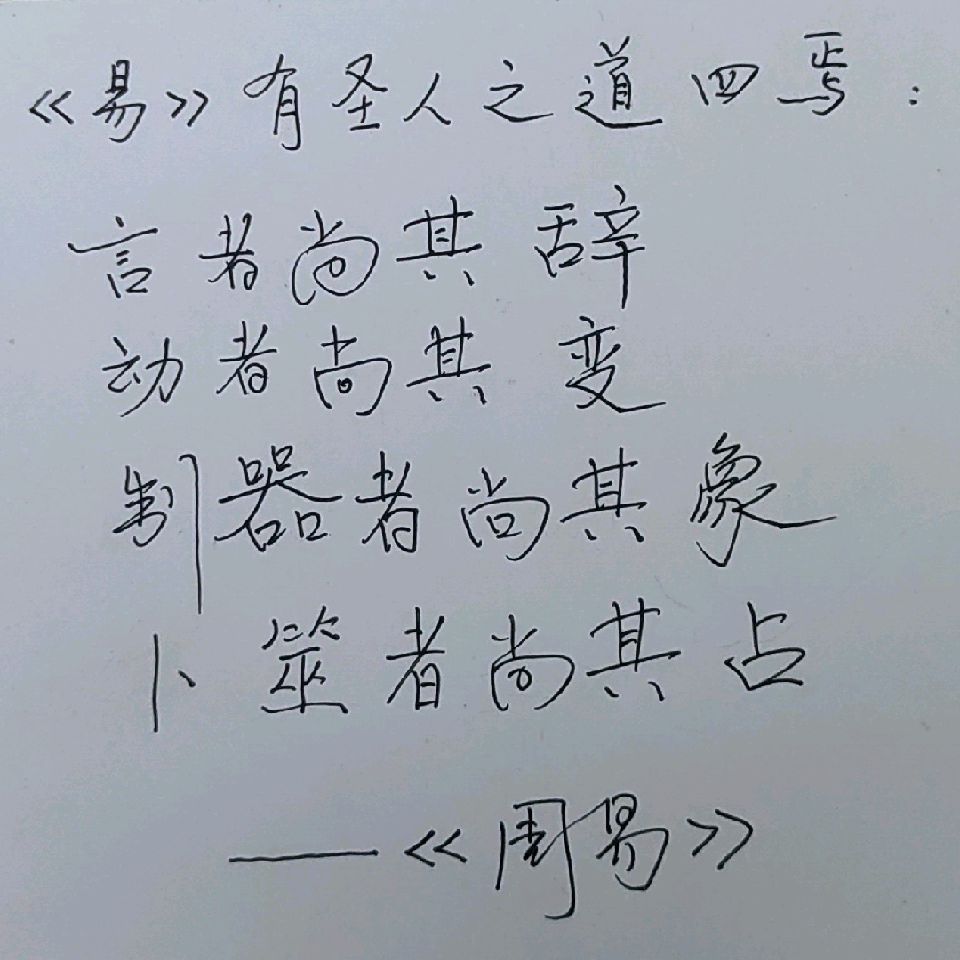 《易》有圣人之道四焉：
言者尚其辞
动者尚其变
制器者尚其象
卜筮者尚其占
——《周易》